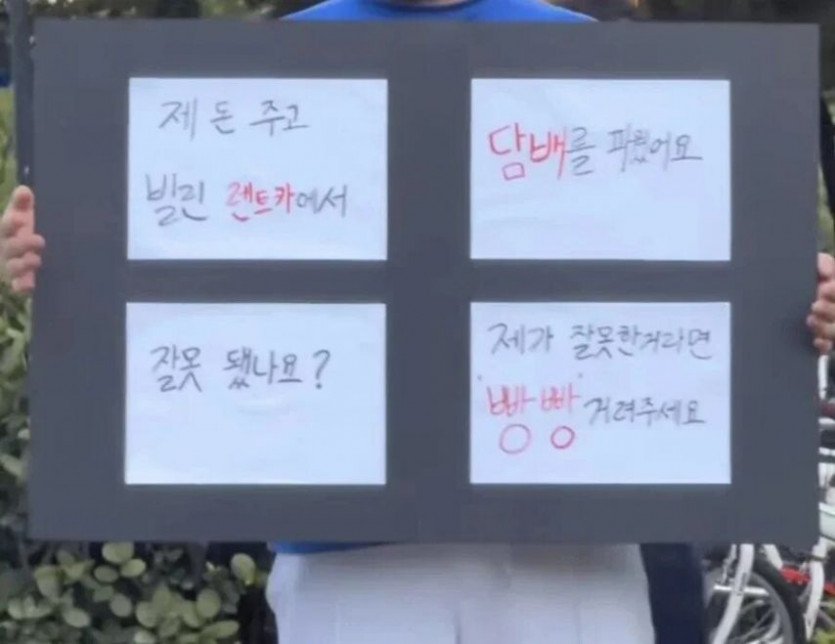 제 돈 주고
빌린 렌트카에서
담배를 피웠어요
잘못 됐나요?
제가 잘못한거라면
'빵빵' 거려주세요